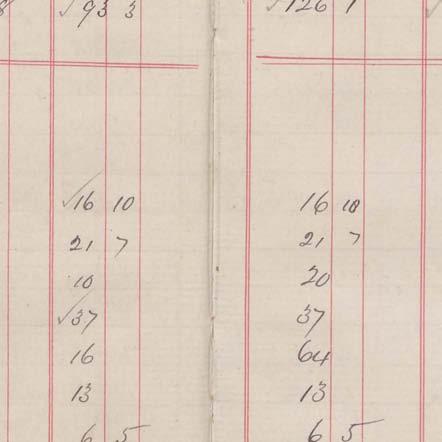 √93 3 √126 1
√16 10 16 10
21 7 21 7
10 20
√37 37
16 64
13 13
6 5 6 5